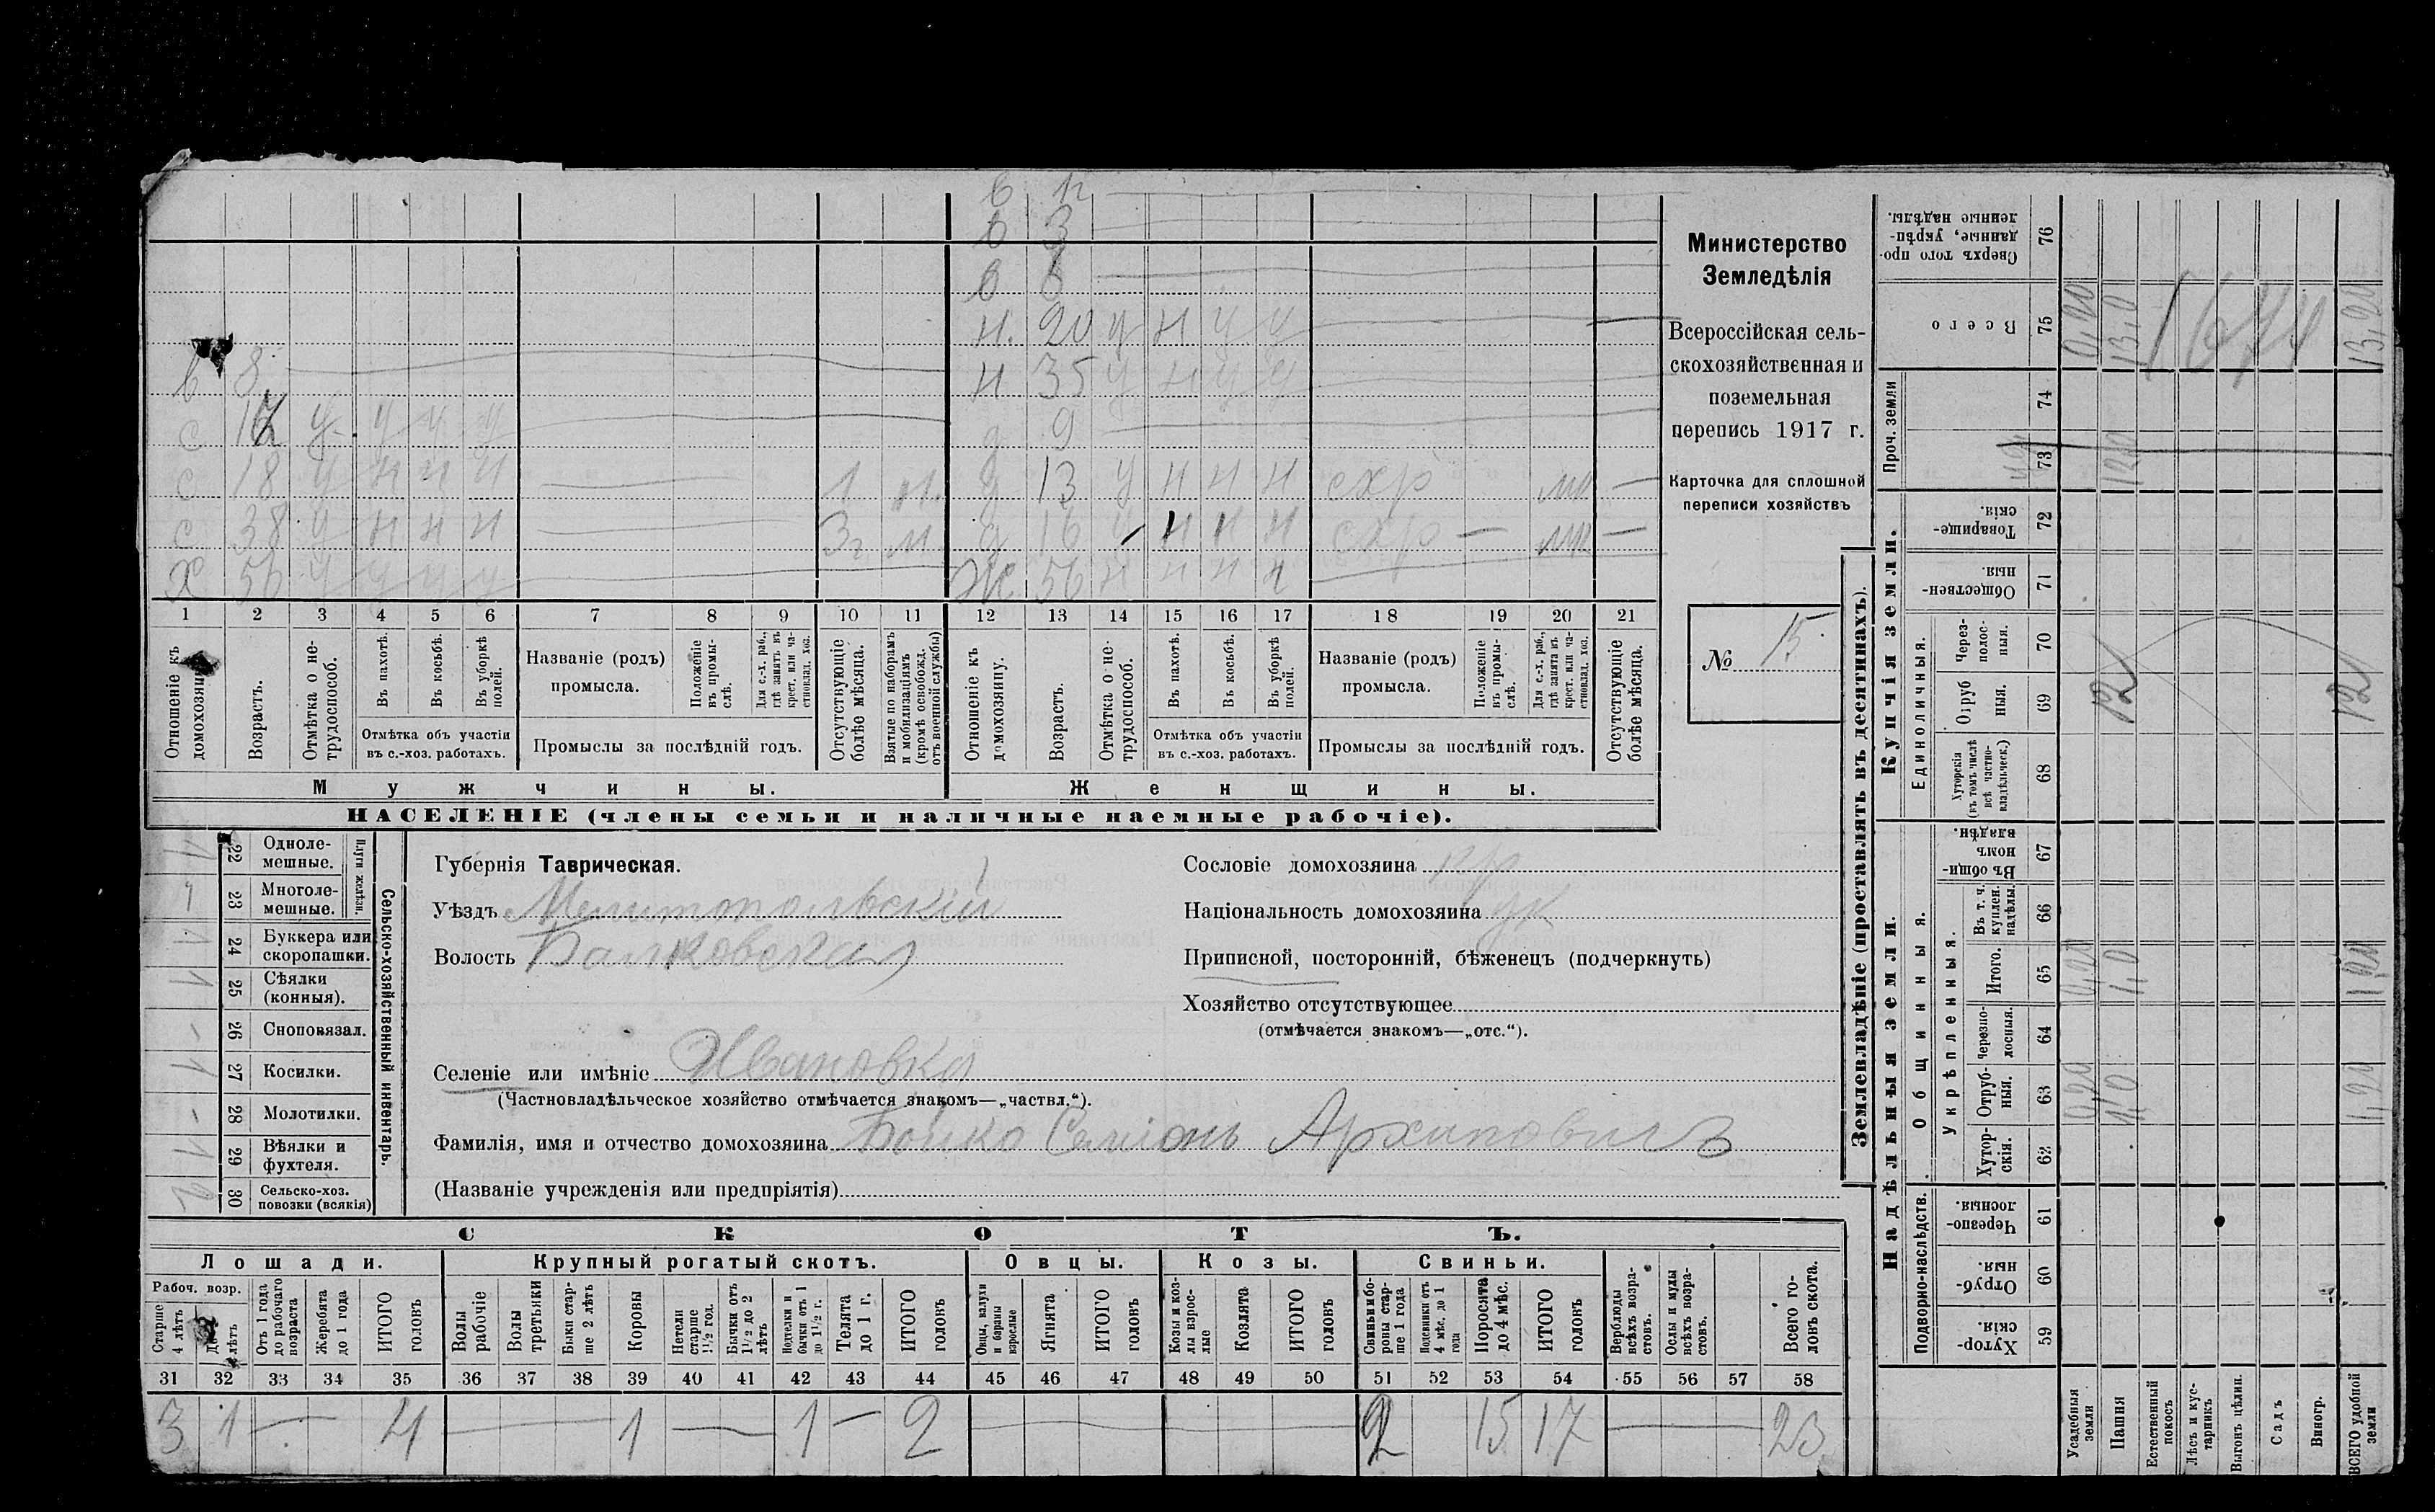 в 12
в 3
в 6
н. 20 у н у у
в 8 н 35 у н у у
с 17 у у у у д 9
с 18 у н н н 1 м. д 13 у н н н схр мп —
с 38 у н н н 3г м д 16 у н н н схр — мп —
Х 56 у у у у Ж 56 н н н н
1 2 3 4 5 6 7 8 9 10 11 12 13 14 15 16 17 18 19 20 21
Отношеніе къ домохозяину.
Возрастъ.
Отмѣтка о нетрудоспособ.
Въ пахотѣ.
Въ косьбѣ.
Въ уборкѣ полей.
Отмѣтка объ участіи въ с.-хоз. работахъ.
Названіе (родъ) промысла.
Положеніе въ промыслѣ.
Для с.-х. раб., гдѣ занятъ въ крест. или частновлад. хоз.
Промыслы за послѣдній годъ.
Отсутствующіе болѣе мѣсяца.
Взятые по наборамъ и мобилизаціямъ (кромѣ освобожд. отъ военной службы)
Отношеніе къ домохозяину.
Возрастъ.
Отмѣтка о нетрудоспособ.
Въ пахотѣ.
Въ косьбѣ.
Въ уборкѣ полей.
Отмѣтка объ участіи въ с.-хоз. работахъ.
Названіе (родъ) промысла.
Положеніе въ промыслѣ.
Для с.-х. раб., гдѣ занята въ крест. или частновлад. хоз.
Промыслы за послѣдній годъ.
Отсутствующіе болѣе мѣсяца.
Мужчины.
Женщины.
НАСЕЛЕНІЕ (члены семьи и наличные наемные рабочіе).
Министерство
Земледѣлія
Всероссійская сель-
скохозяйственная и
поземельная
перепись 1917 г.
Карточка для сплошной
переписи хозяйствъ
№ 15
Сельско-хозяйственный инвентарь.
Плуги желѣзн.
22 Одноле-мешные.
1 23 Многоле-мешные.
1 24 Буккера или скоропашки.
1 25 Сѣялки (конныя).
- 26 Сноповязал.
1 27 Косилки.
- 28 Молотилки.
1 29 Вѣялки и фухтеля.
2 30 Сельско-хоз. повозки (всякія)
Губернія Таврическая.
Уѣздъ Мелитопольскій
Волость Балковская
Сословіе домохозяина кр
Національность домохозяина ук
Приписной, посторонній, бѣженецъ (подчеркнуть)
Хозяйство отсутствующее
(отмѣчается знакомъ—„отс.“).
Селеніе или имѣніе Ивановка
(Частновладѣльческое хозяйство отмѣчается знакомъ—„частвл.“).
Фамилія, имя и отчество домохозяина Бойко Семіонъ Архиповичъ
(Названіе учрежденія или предпріятія)
СКОТЪ.
Лошади. Крупный рогатый скотъ. Овцы. Козы. Свиньи.
Рабоч. возр.
Старше 4 лѣтъ
До 4 лѣтъ
Отъ 1 года до рабочаго возраста
Жеребята до 1 года
ИТОГО головъ
Волы рабочіе
Волы третьяки
Быки старше 2 лѣтъ
Коровы
Нетели старше 1½ год.
Бычки отъ 1½ до 2 лѣтъ
Подтелки и бычки отъ 1 до 1½ г.
Телята до 1 г.
ИТОГО головъ
Овцы, валухи и бараны взрослые
Ягнята
ИТОГО головъ
Козы и козлы взрослые
Козлята
ИТОГО головъ
Свиньи и боровы старше 1 года
Подсвинки отъ 4 мѣс. до 1 года
Поросята до 4 мѣс.
ИТОГО головъ
Верблюды всѣхъ возрастовъ.
Ослы и мулы всѣхъ возрастовъ.
Всего головъ скота.
31 32 33 34 35 36 37 38 39 40 41 42 43 44 45 46 47 48 49 50 51 52 53 54 55 56 57 58
3 1 — 4 — 1 — 1 — 2 — 2 15 17 — 23
Землевладѣніе (проставлять въ десятинахъ).
Надѣльныя земли.
Купчія земли.
Проч. земли
Подворно-наслѣдств.
Общинныя.
Укрѣпленныя.
Единоличныя.
Хуторскія. 59
Отрубныя. 60
Черезполосныя. 61
Хуторскія. 62
Отрубныя. 63 0,20 1,0 1,20
Черезполосныя. 64
Итого. 65 0,20 1,0 1,20
Въ т. ч. куплен. надѣлы. 66
Въ общинномъ владѣн. 67
Хуторскія (въ томъ числѣ всѣ частновладѣльческ.) 68
Отрубныя. 69 12 12
Черезполосныя. 70
Общественныя. 71
Товарищескія. 72
73 12,0
74
Всего 75 0,20 13,0 1674 13,20
Сверхъ того проданные, укрѣпленные надѣлы. 76
Усадебныя земли
Пашня
Естественный покосъ
Лѣсъ и кустарникъ
Выгонъ цѣлин.
Садъ
Виногр.
ВСЕГО удобной земли